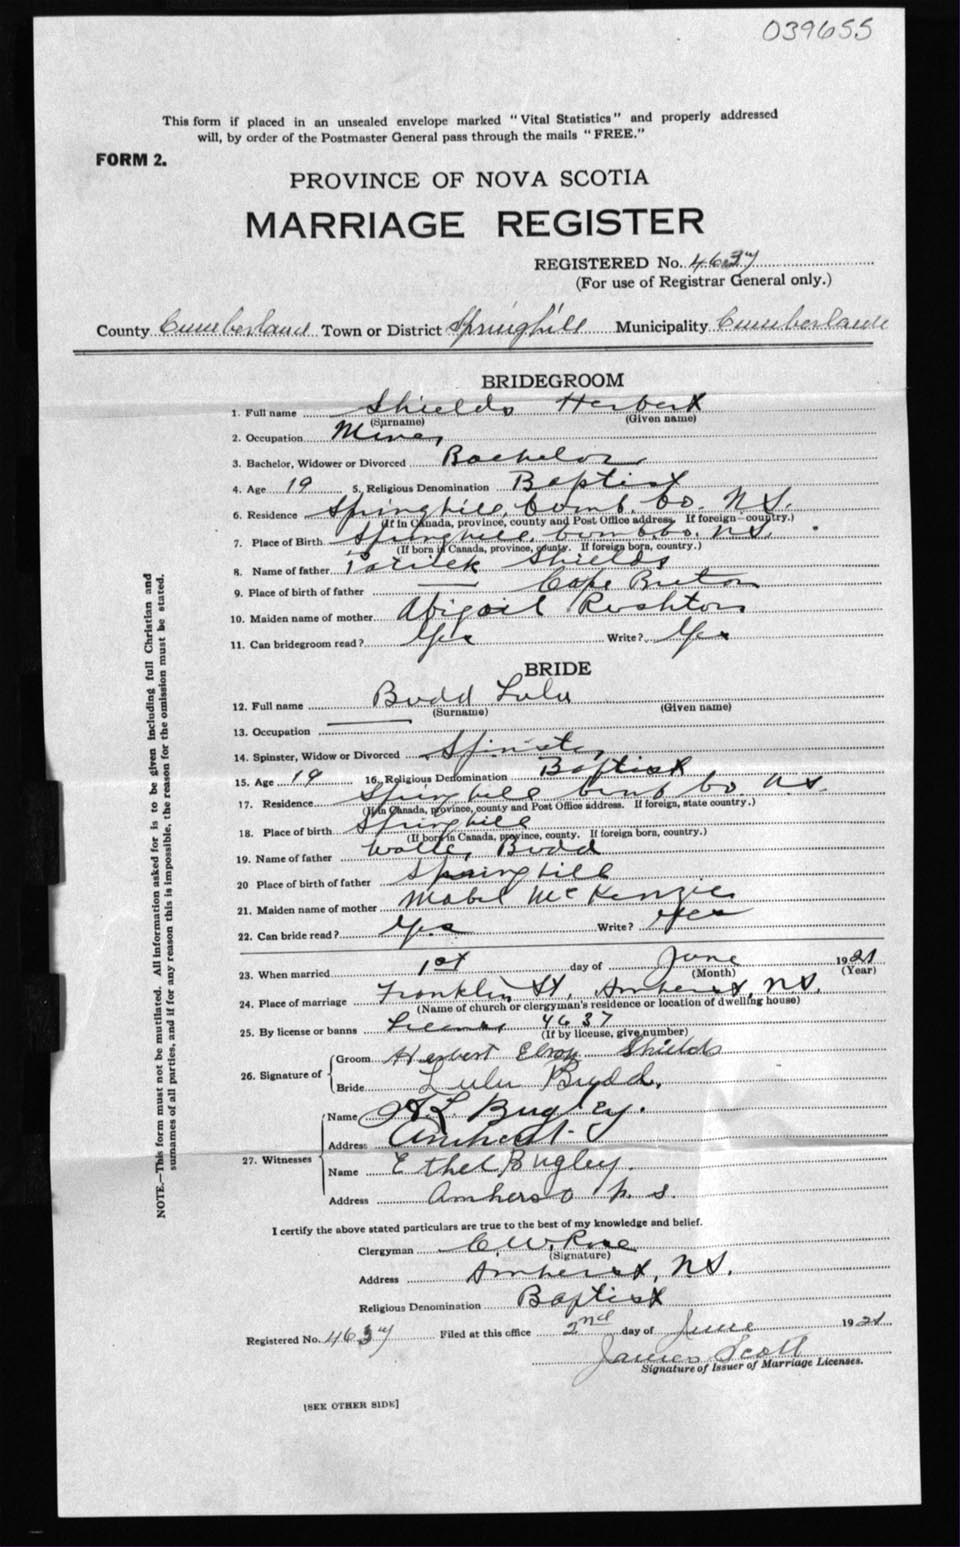 039655
This form if placed in an unsealed envelope marked "Vital Statistics" and properly addressed
will, by order of the Postmaster General pass through the mails "FREE."
FORM 2.
PROVINCE OF NOVA SCOTIA
MARRIAGE REGISTER
REGISTERED No. 4637
(For use of Registrar General only.)
County Cumberland Town or District Springhill Municipality Cumberland
BRIDEGROOM
1. Full name Shields Herbert
(Surname) (Given name)
2. Occupation Miner
3. Bachelor, Widower or Divorced Bachelor
4. Age 19 5. Religious Denomination Baptist
6. Residence Springhill, Cumb. Co. N.S.
(If in Canada, province, county and Post Office address. If foreign—country.)
7. Place of Birth Springhill, Cumb. Co. N.S.
(If born in Canada, province, county. If foreign born, country.)
8. Name of father Patrick Shields
9. Place of birth of father Cape Breton
10. Maiden name of mother Abigail Rushton
11. Can bridegroom read? Yes Write? Yes
BRIDE
12. Full name Budd Lulu
(Surname) (Given name)
13. Occupation
14. Spinster, Widow or Divorced Spinster
15. Age 19 16. Religious Denomination Baptist
17. Residence Springhill Cumb Co. N.S.
(If in Canada, province, county and Post Office address. If foreign, state country.)
18. Place of birth Springhill
(If born in Canada, province, county. If foreign born, country.)
19. Name of father Walter Budd
20 Place of birth of father Springhill
21. Maiden name of mother Mabel McKenzie
22. Can bride read? Yes Write? Yes
23. When married 1st day of June 1921
(Month) (Year)
24. Place of marriage Franklin St, Amherst, N.S.
(Name of church or clergyman's residence or location of dwelling house)
25. By license or banns License 4637
(If by license, give number)
26. Signature of Groom Herbert Shields
Bride Lulu Budd,
27. Witnesses Name Bugley.
Address Amherst.
Name Ethel Bugley.
Address Amherst N. S.
I certify the above stated particulars are true to the best of my knowledge and belief.
Clergyman C. W. Rose
(Signature)
Address Amherst, N.S.
Religious Denomination Baptist
Registered No. 4637 Filed at this office 2nd day of June 1921
James Scott
Signature of Issuer of Marriage Licenses.
[SEE OTHER SIDE]
NOTE.—This form must not be mutilated. All information asked for is to be given including full Christian and
surnames of all parties, and if for any reason this is impossible, the reason for the omission must be stated.